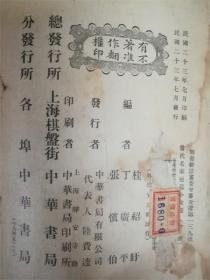 民國二十三年七月印刷
民國二十三年七月發行
有著作
不准翻印
編者
桂紹盱
丁廣平
張慎伯
發行者
中華書局有限公司
代表人 陸費逵
印刷者
上海靜安寺路
中華書局印刷所
總發行所
上海棋盤街
中華書局
分發行所
各埠
中華書局
1680-6